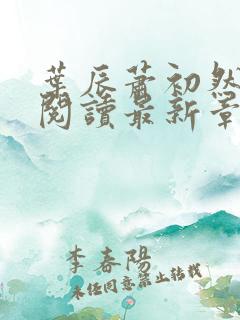 葉辰蕭初然
閱讀最新章
李春陽
未經同意禁止轉載